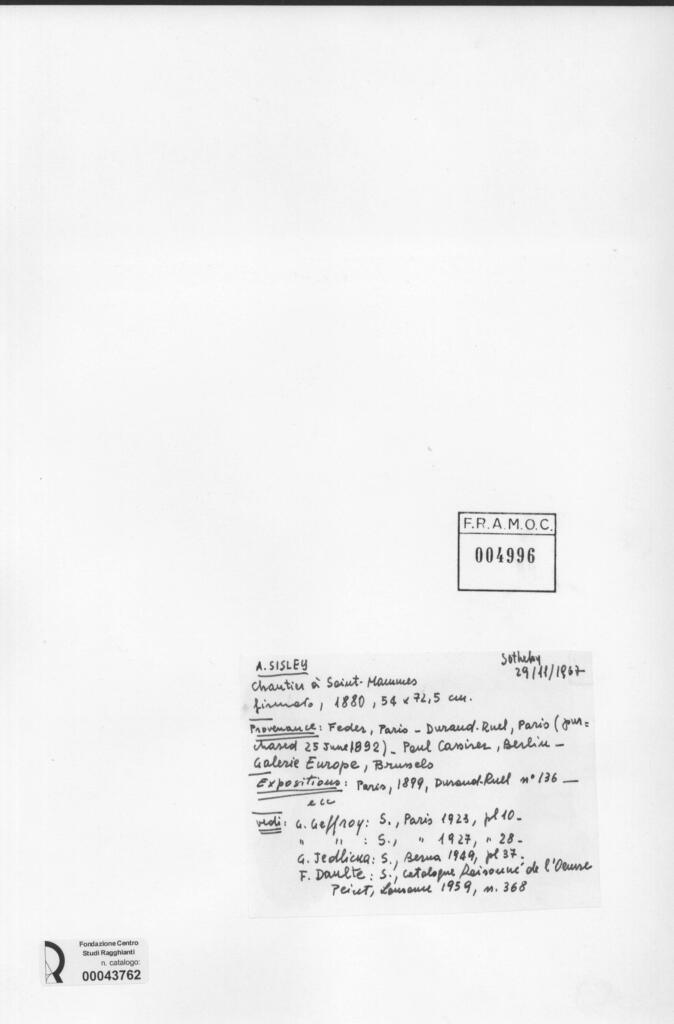 F.R.A.M.O.C.
004996
A. SISLEY
Sotheby
29/11/1967
Chantier à Saint-Mammes
firmato, 1880, 54 x 72,5 cm.
Provenance: Feder, Paris - Durand-Ruel, Paris (pur=
chased 25 June 1892) - Paul Cassirer, Berlin -
Galerie Europe, Brussels
Expositions: Paris, 1899, Durand-Ruel n° 136 —
ecc
vedi: G. Geffroy: S., Paris 1923, pl 10 -
" " : S., " 1927, " 28 -
G. Jedlicka: S., Berna 1949, pl 37 -
F. Daulte: S., Catalogue Raisonné de l'Oeuvre
Peint, Lausanne 1959, n. 368
Fondazione Centro
Studi Ragghianti
n. catalogo:
00043762